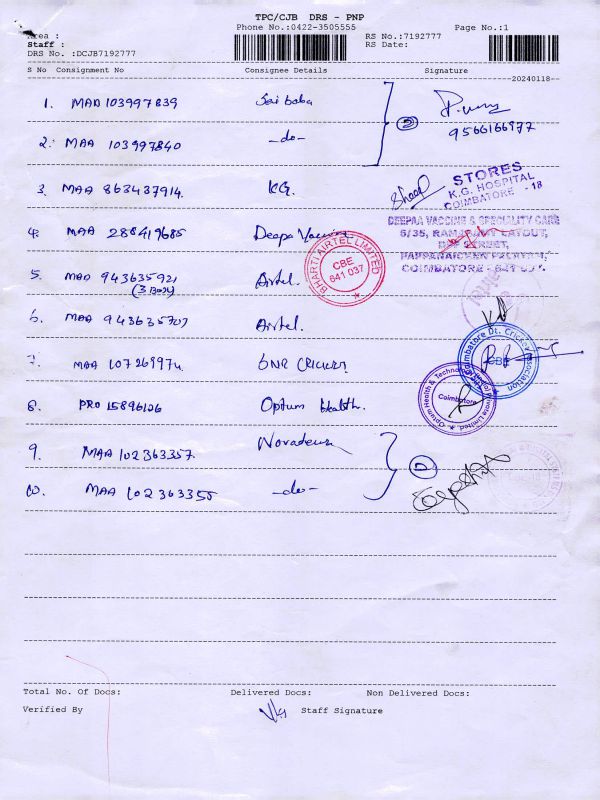 TPC/CJB DRS - PNP
Phone No.:0422-3505555 Page No.:1
Area :
Staff : RS No.:7192777
DRS No. :DCJB7192777 RS Date:
S No Consignment No Consignee Details Signature
20240118
1. MAA 103997839 Sai baba
2. MAA 103997840 -do-
9566166977
3. MAA 863437914 KG.
STORES
K.G. HOSPITAL
COIMBATORE - 18
4. MAA 288419685 Deepa Vaccine
DEEPAA VACCINE & SPECIALITY CARE
5/35, RAMASAMY LAYOUT,
STREET,
PAPPANAICKEN PALAYAM,
COIMBATORE - 641 037.
5. MAA 943635921 Airtel.
(3 Box)
BHARTI AIRTEL LIMITED
CBE
641 037
6. MAA 943635707 Airtel.
7. MAA 107269974 CRICKET
Coimbatore Dt. Cricket Association
CBE
8. PRO 15896126 Optum Health.
Optum Health & Technology Private Limited.
Coimbatore
9. MAA 102363357
10. MAA 102363355 -do-
Total No. Of Docs: Delivered Docs: Non Delivered Docs:
Verified By Staff Signature